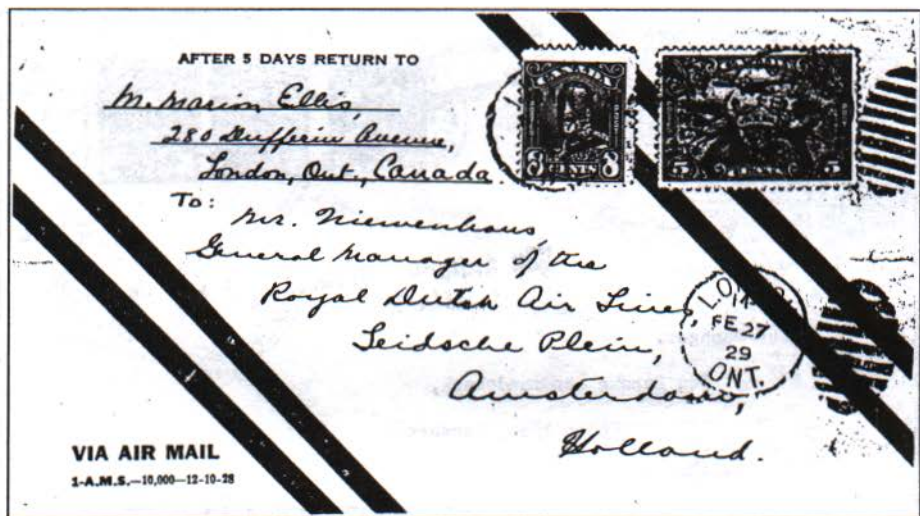 AFTER 5 DAYS RETURN TO
M. Marion Ellis,
280 Dufferin Avenue,
London, Ont., Canada.
CANADA
CANADA
8 CENTS 8
5 CENTS 5
To:
Mr. Niewenhaus
General Manager of the
Royal Dutch Air Lines,
Leidsche Plein,
Amsterdam,
Holland.
14
FE 27
29
ONT.
VIA AIR MAIL
1-A.M.S.—10,000—12-10-28